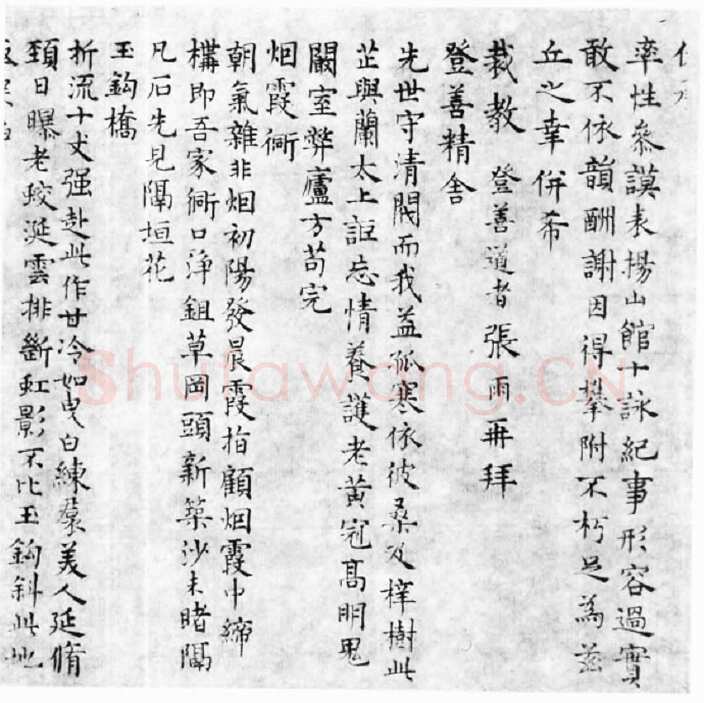 率性參謨表揚山館十詠紀事形容過實
敢不依韻酬謝因得攀附不朽足為茲
丘之幸併希
裁教 登善道者張雨再拜
登善精舍
先世守清閥而我益孤寒依彼桑及梓樹此
芷與蘭太上詎忘情養護老黃冠高明鬼
闞室弊廬方苟完
烟霞衕
朝氣雜非烟初陽發晨霞指顧烟霞中締
構即吾家衕口淨鉏草岡頭新築沙未睹隔
凡石先見隔垣花
玉鈎橋
折流十丈强赴此作甘冷如曳白練羣美人延脩
頚日曝老蛟涎雲排斷虹影不比玉鈎斜此地
Shufawang.CN